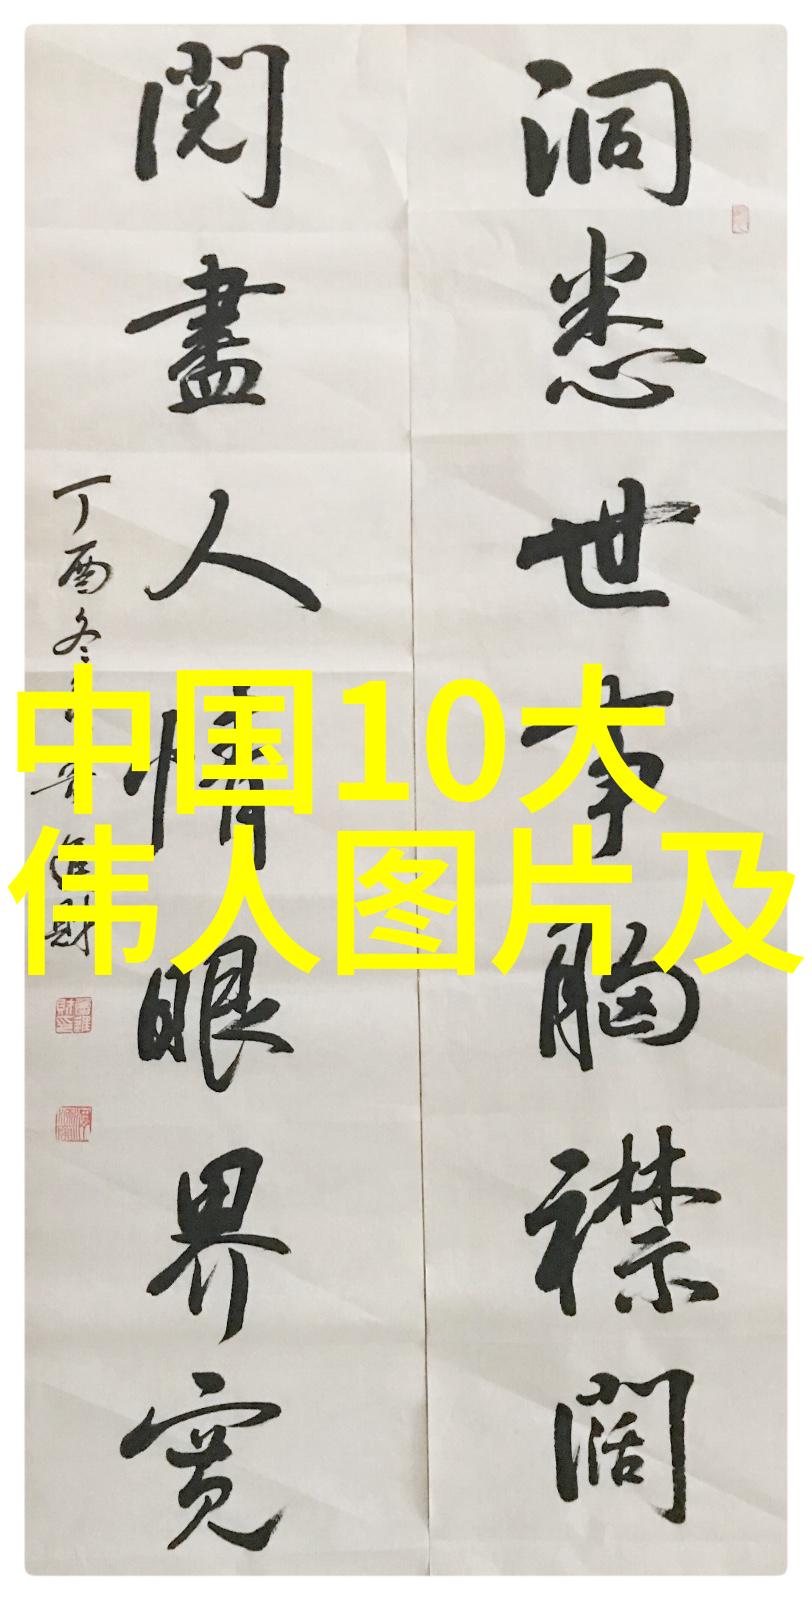 洞悉世事胸襟阔
阅尽人情眼界宽
丁酉冬
财
中国10大
伟人图片及